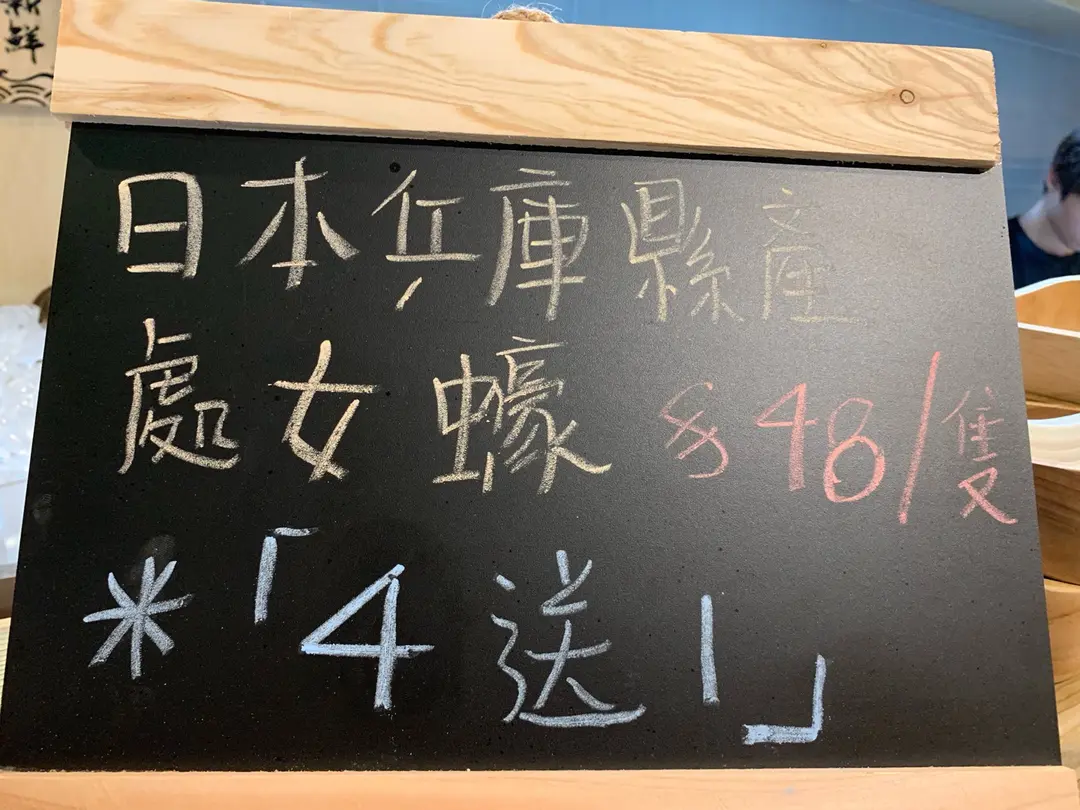 新鮮
日本兵庫縣產
處女蠔 $48/隻
*「4送1」